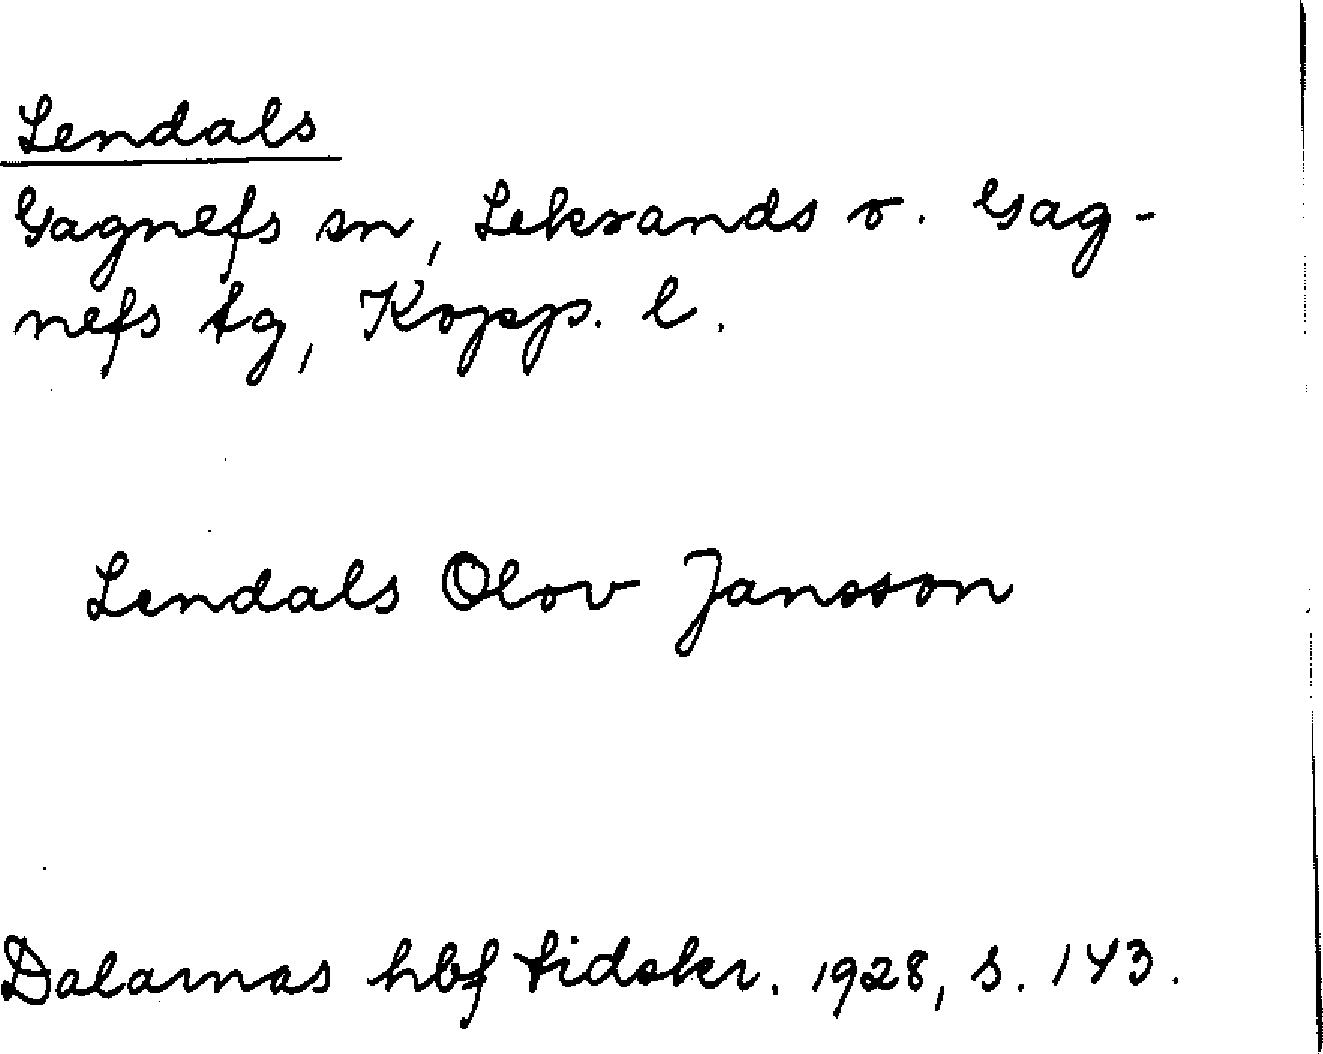 Lendals
Gagnefs sn, Leksands o. Gag-
nefs tg, Kopp. l.
Lendals Olov Jansson
Dalarnas hbf tidskr. 1928, s. 143.